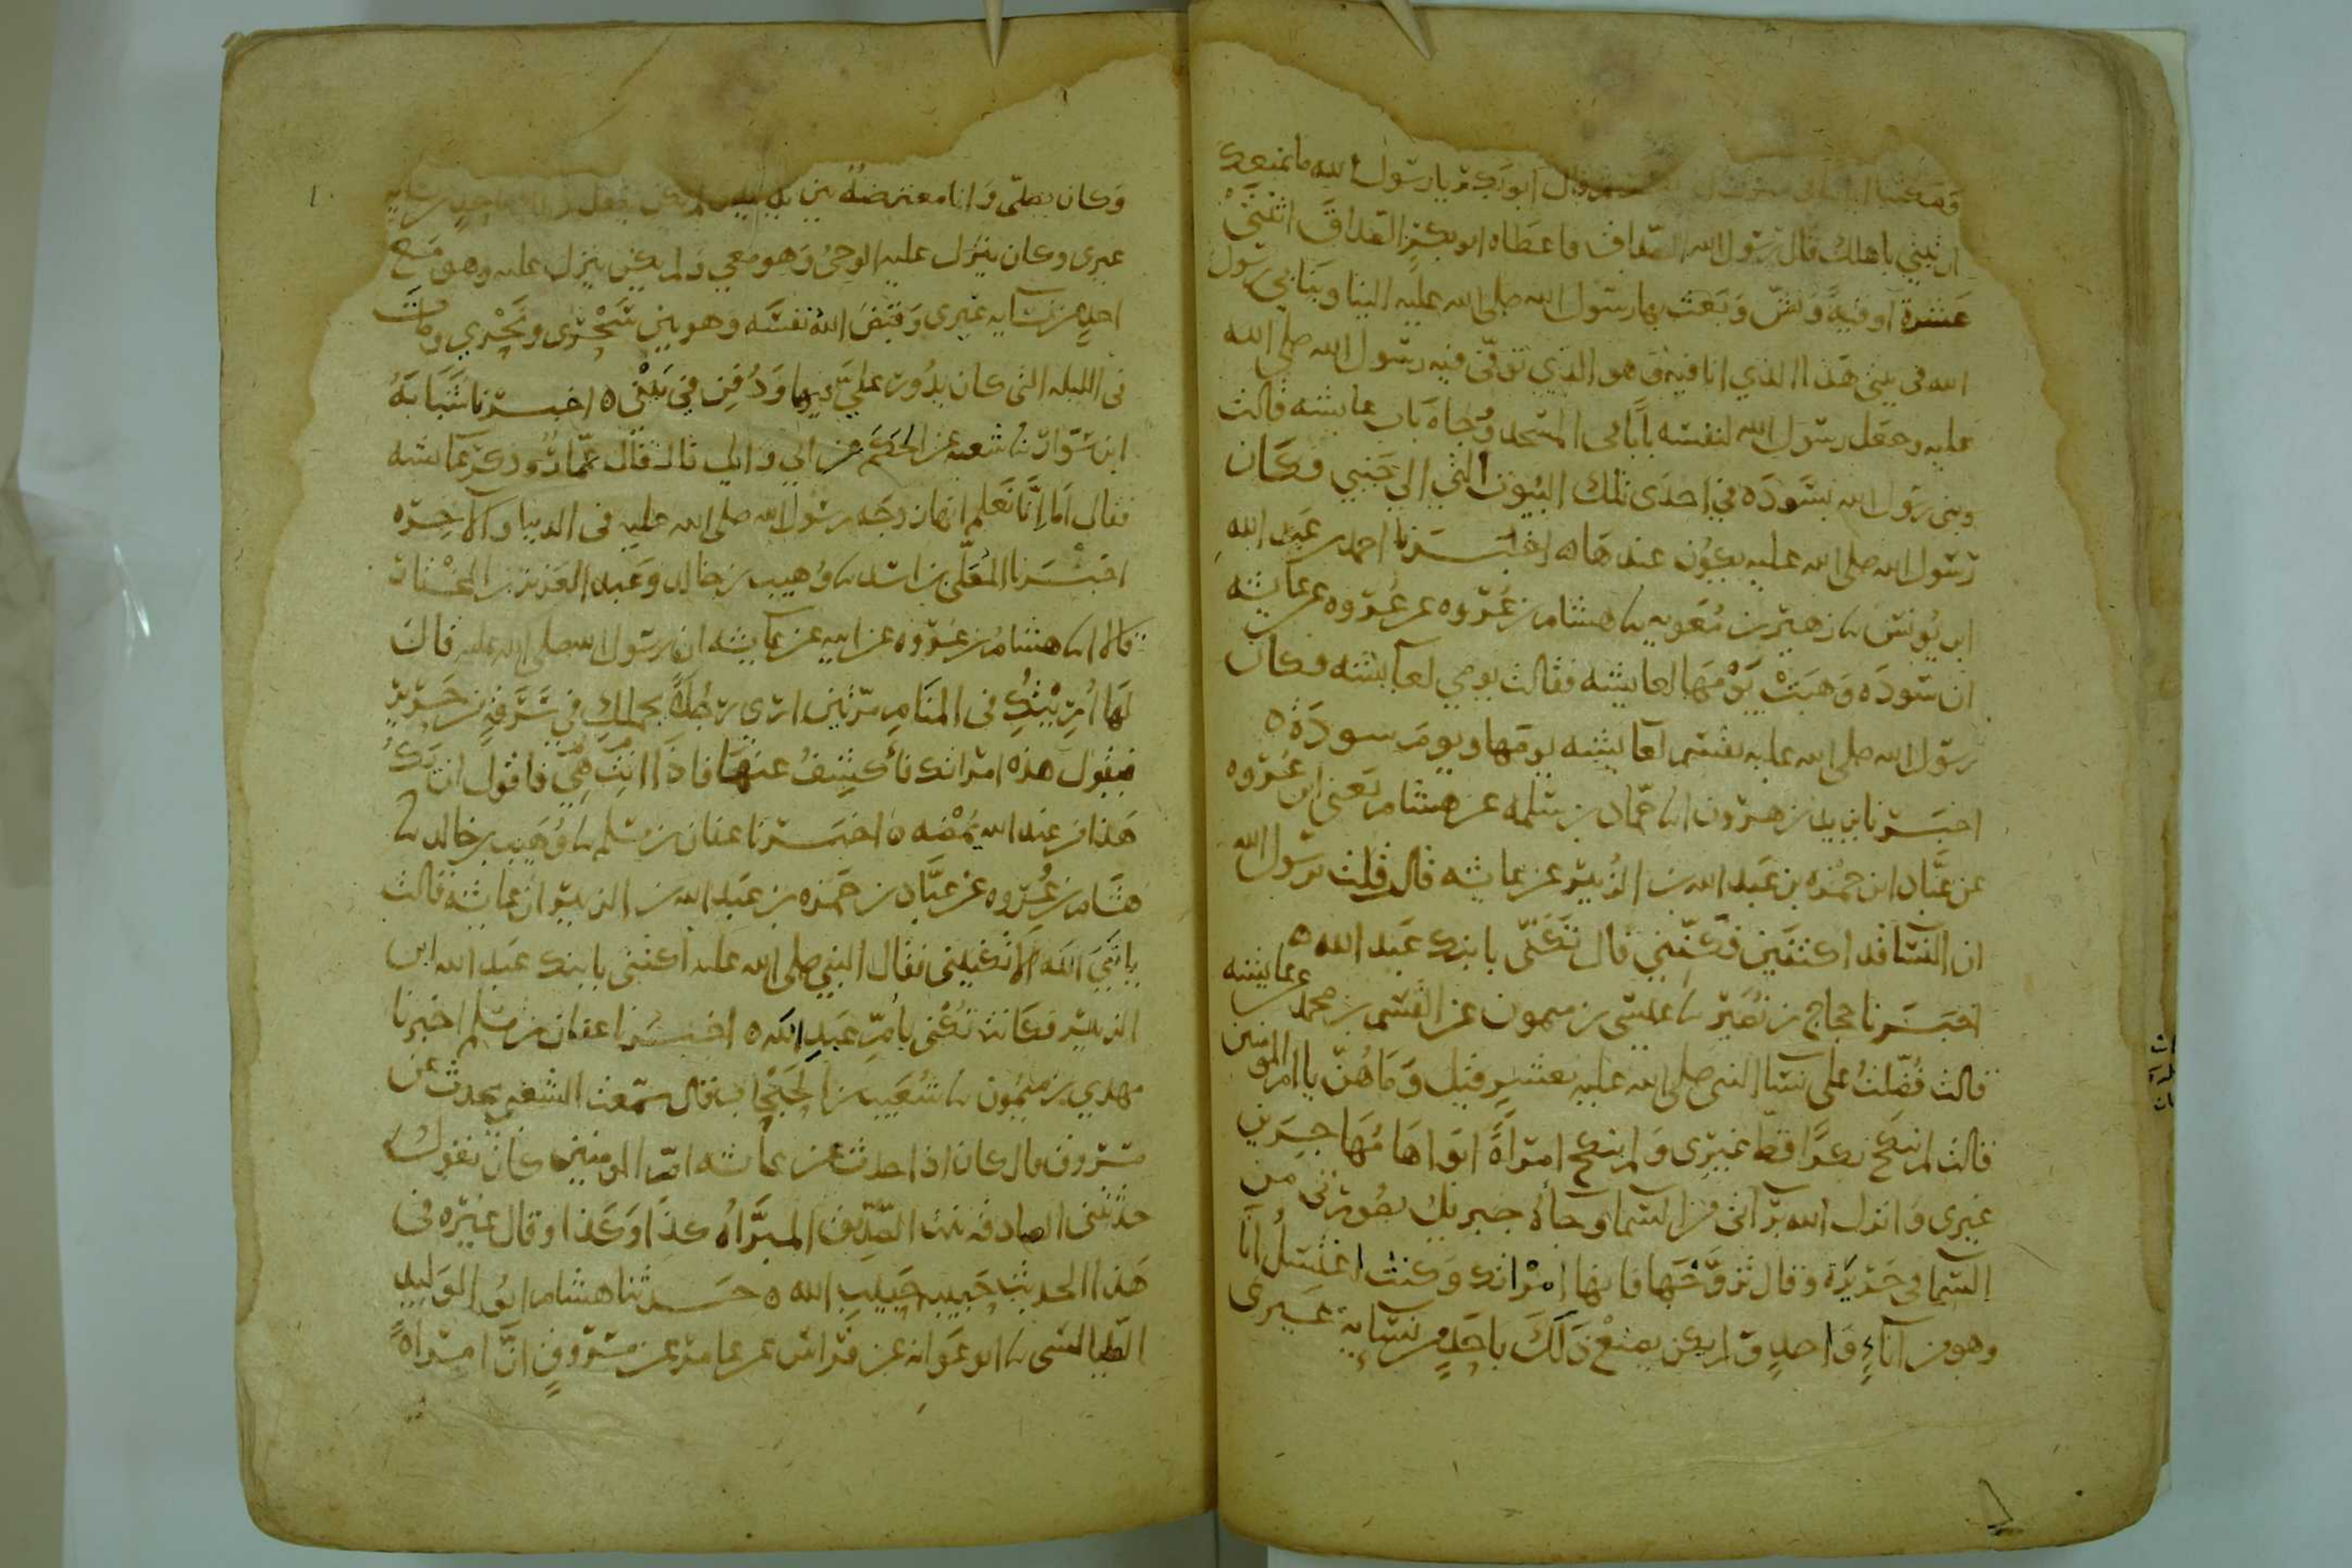 ثم قال ابو بكر يا رسول الله ما يمنعك
ان تبني باهلك قال رسول الله الصداق فاعطاه ابو بكر الصداق اثنتي
عشرة اوقية ونش وبعث بها رسول الله صلى الله عليه الينا وبنا بي رسول
الله في بيتي هذا الذي انا فيه وهو الذي توفي فيه رسول الله صلى الله
عليه وجعل رسول الله لنفسه بابا في المسجد وجاه باب عايشه قالت
وبنى رسول الله بسوده في احدى تلك البيوت التي الى جنبي فكان
رسول الله صلى الله عليه يكون عندها ه اخبرنا احمد بن عبد الله
ابن يونس نا زهير بن معويه نا هشام بن عروه عن عروه عن عايشه
ان سوده وهبت يومها لعايشه فقالت يومي لعايشه فكان
رسول الله صلى الله عليه يقسم لعايشه يومها ويوم سودة ه
اخبرنا يزيد بن هرون انا حماد بن سلمه عن هشام يعني ابن عروه
عن عباد ابن حمزه بن عبد الله بن الزبير عن عايشه قال قلت يرسول الله
ان النسا قد اكتنين فكنيني قال تكنى بابنك عبد الله ه
اخبرنا حجاج بن نصير نا عيسى بن ميمون عن القسم بن محمد عن عايشه
قالت فضلت على نسا النبي صلى الله عليه بعشر قيل وما هن يا ام المومنين
قالت لم ينكح بكرا قط غيري ولم ينكح امراة ابواها مهاجرين
غيري وانزل الله براتي من السما وجاه جبريل بصورتي من
السما في حريرة وقال تزوجها فانها امراتك وكنت اغتسل انا
وهو من اناء واحد ولم يكن يصنع ذلك باحد من نسايه غيري
وكان يصلي وانا معترضة بين يديه
غيري وكان ينزل عليه الوحي وهو معي ولم يكن ينزل عليه وهو مع
احد من نسايه غيري وقبض الله نفسه وهو بين سحري ونحري ومات
في الليله التي كان يدور علي فيها ودفن في بيتي ه اخبرنا شبابة
ابن سوار نا شعبه عن الحكم عن ابي وايل قال قال عمار وذكر عايشه
فقال اما انا نعلم انها زوجه رسول الله صلى الله عليه في الدنيا والاخره
اخبرنا المعلى بن اسد نا وهيب بن خالد وعبد العزيز بن المختار
قالا نا هشام بن عروه عن ابيه عن عايشه ان رسول الله صلى الله عليه قال
لها اريتك في المنام مرتين ارى رجلا يحملك في سرقة من حرير
فيقول هذه امراتك فاكشف عنها فاذا انت هي فاقول ان يك
هذا من عند الله يمضه ه اخبرنا عفان بن مسلم نا وهيب بن خالد نا
هشام بن عروه عن عباد بن حمزه بن عبد الله بن الزبير ان عايشه قالت
يا نبي الله الا تكنيني فقال النبي صلى الله عليه اكتني بابنك عبد الله ابن
الزبير فكانت تكنى بام عبد الله ه اخبرنا عفان بن مسلم اخبرنا
مهدي بن ميمون نا شعيب بن الحبحاب قال سمعت الشعبي يحدث عن
مسروق قال كان اذا حدث عن عايشه ام المومنين كان يقول
حدثتني الصادقه بنت الصديق المبراه كذا وكذا وقال غيره في
هذا الحديث حبيبه حبيب الله ه حدثنا هشام ابو الوليد
الطيالسي نا ابو عوانه عن فراس عن عامر عن مسروق ان امراة